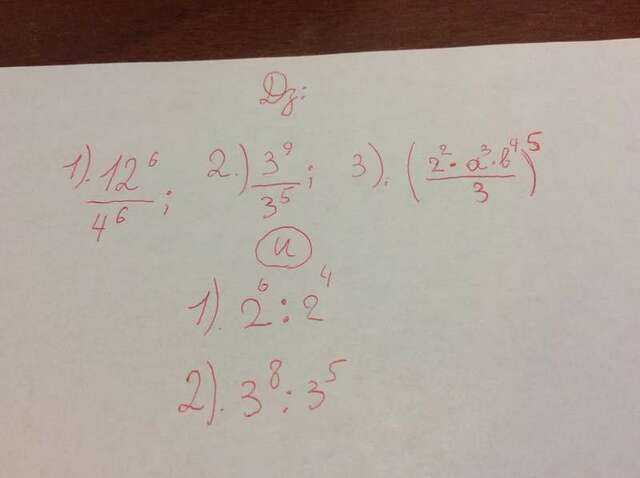 Дз:
1). 12⁶/4⁶; 2.) 3⁹/3⁵; 3). (2²·a³·b⁴/3)⁵
и
1). 2⁶:2⁴
2). 3⁸:3⁵